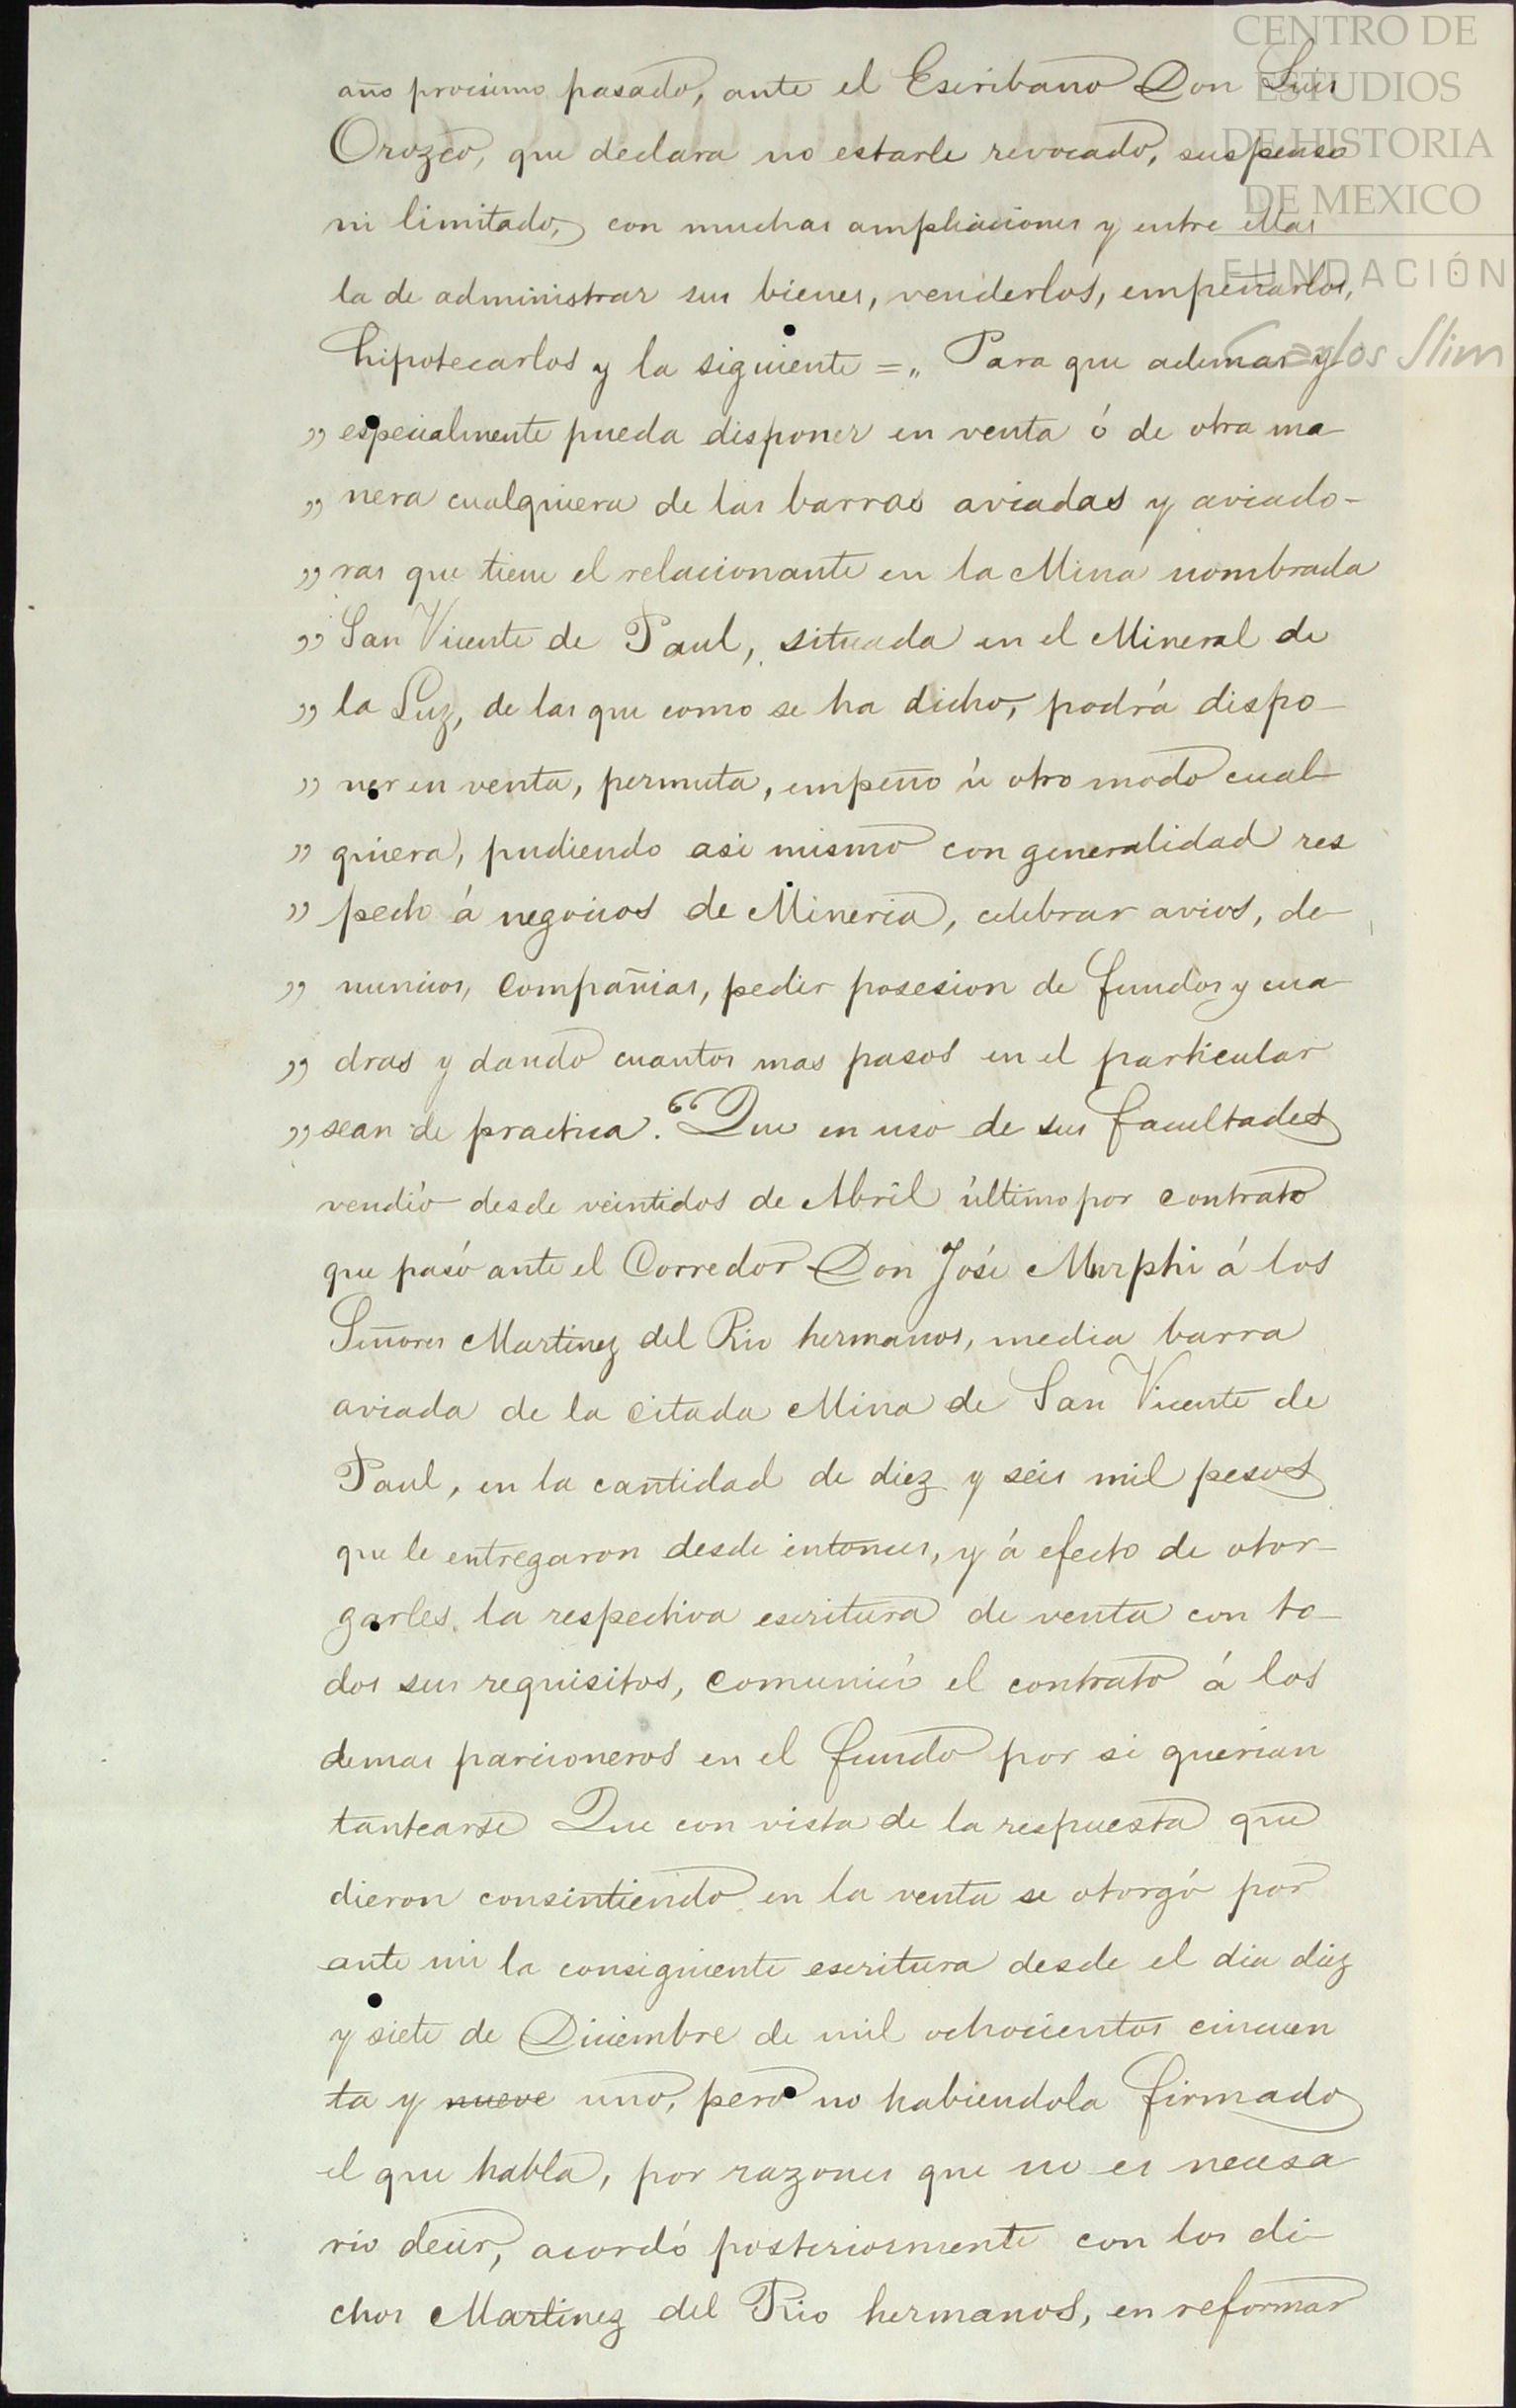 CENTRO DE
ESTUDIOS
DE HISTORIA
DE MEXICO
FUNDACIÓN
Carlos Slim
año procsimo pasado, ante el Escribano Don Luis
Orozco, que declara no estarle revocado, suspenso
ni limitado, con muchas ampliaciones y entre ellas
la de administrar sus bienes, venderlos, empeñarlos,
hipotecarlos y la siguiente =„ Para que ademas y
„ especialmente pueda disponer en venta ó de otra ma
„ nera cualquiera de las barras aviadas y aviado-
„ ras que tiene el relacionante en la Mina nombrada
„ San Vicente de Paul, situada en el Mineral de
„ la Luz, de las que como se ha dicho, podrá dispo-
„ ner en venta, permuta, empeño ú otro modo cual-
„ quiera, pudiendo asi mismo con generalidad res
„ pecto á negocios de Mineria, celebrar avios, de-
„ nuncios, Compañias, pedir posesion de fundos y cua-
„ dras y dando cuantos mas pasos en el particular
„ sean de practica.“ Que en uso de sus facultades
vendió desde veintidos de Abril último por contrato
que pasó ante el Corredor Don José Murphi á los
Señores Martinez del Rio hermanos, media barra
aviada de la citada Mina de San Vicente de
Paul, en la cantidad de diez y seis mil pesos
que le entregaron desde entonces, y á efecto de otor-
garles la respectiva escritura de venta con to-
dos sus requisitos, comunicó el contrato á los
demas parcioneros en el fundo por si querian
tantearse Que con vista de la respuesta que
dieron consintiendo en la venta se otorgó por
ante mi la consiguiente escritura desde el dia diez
y siete de Diciembre de mil ochocientos cincuen
ta y nueve uno, pero no habiendola firmado
el que habla, por razones que no es necesa
rio decir, acordó posteriormente con los di-
chos Martinez del Rio hermanos, en reformar